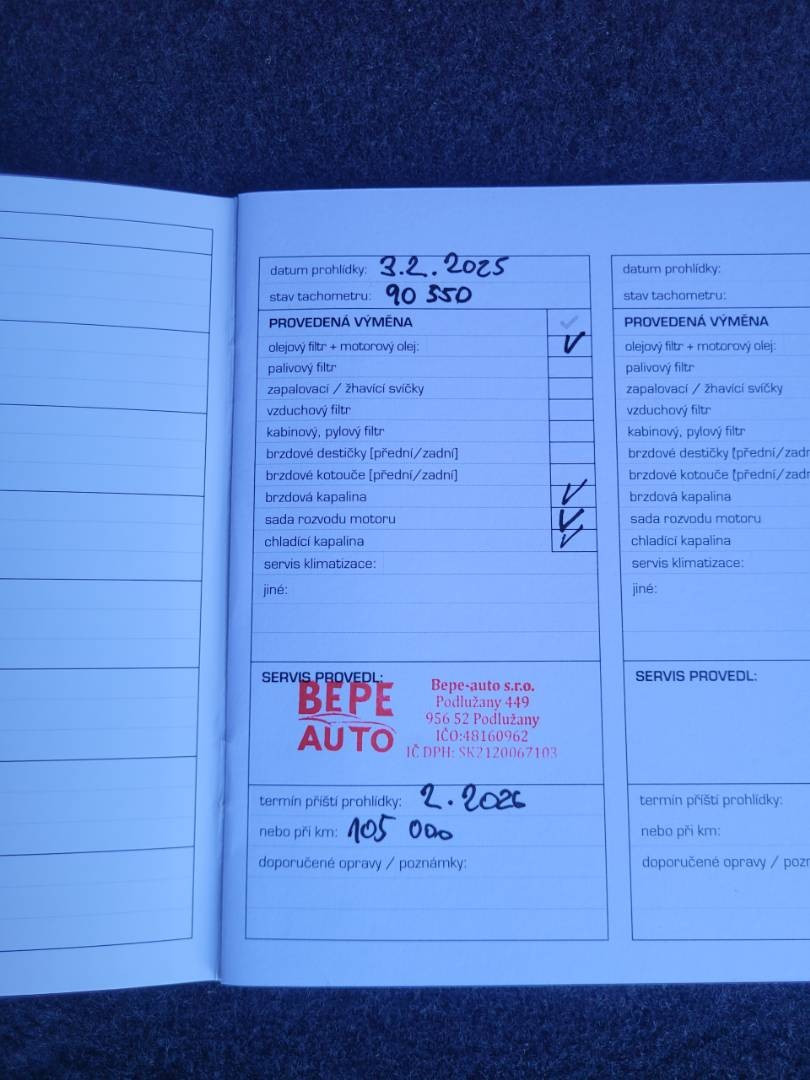 datum prohlídky: 3.2.2025
stav tachometru: 90 550
PROVEDENÁ VÝMĚNA
olejový filtr + motorový olej:
palivový filtr
zapalovací / žhavící svíčky
vzduchový filtr
kabinový, pylový filtr
brzdové destičky [přední/zadní]
brzdové kotouče [přední/zadní]
brzdová kapalina
sada rozvodu motoru
chladící kapalina
servis klimatizace:
jiné:
SERVIS PROVEDL:
BEPE
AUTO
Bepe-auto s.r.o.
Podlužany 449
956 52 Podlužany
IČO:48160962
IČ DPH: SK2120067103
termín příští prohlídky: 2.2026
nebo při km: 105 000
doporučené opravy / poznámky:
datum prohlídky:
stav tachometru:
PROVEDENÁ VÝMĚNA
olejový filtr + motorový olej:
palivový filtr
zapalovací / žhavící svíčky
vzduchový filtr
kabinový, pylový filtr
brzdové destičky [přední/zadn
brzdové kotouče [přední/zadn
brzdová kapalina
sada rozvodu motoru
chladící kapalina
servis klimatizace:
jiné:
SERVIS PROVEDL:
termín příští prohlídky:
nebo při km:
doporučené opravy / pozn